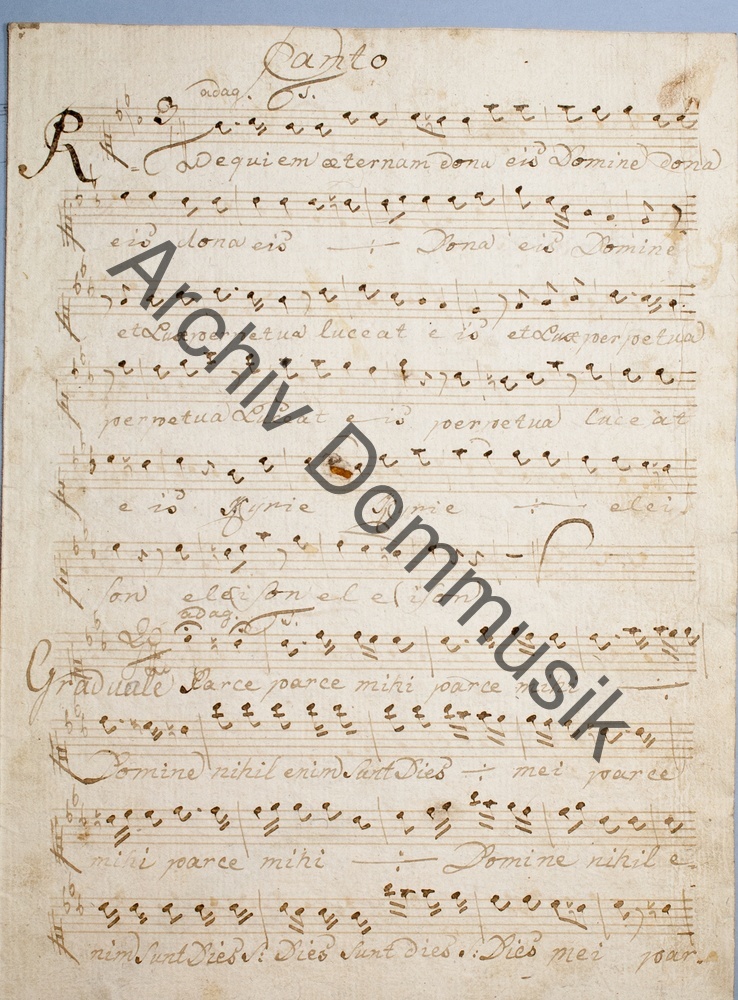 Canto
adag. s.
Requiem æternam dona eis Domine dona
eis dona eis ÷ Dona eis Domine
et Lux perpetua luceat e is et Lux perpetua
perpetua Luceat e is perpetua luceat
e is Kyrie Kyrie ÷ elei-
son eleison el eison
adag. s.
Graduale Parce parce mihi parce mihi ÷
Domine nihil enim Sunt Dies ÷ mei parce
mihi parce mihi ÷ Domine nihil e-
nim Sunt Dies s: Dies Sunt dies .: Dies mei par-
Archiv Dommusik